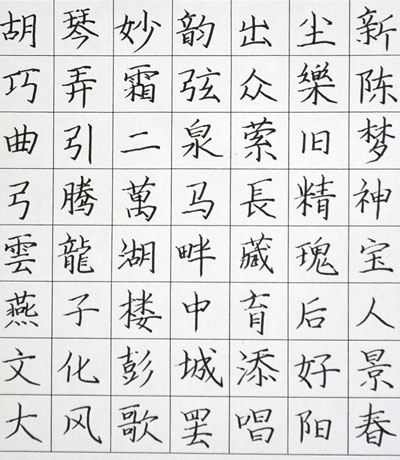 胡琴妙韵出尘新
巧弄霜弦众樂陈
曲引二泉萦旧梦
弓腾萬马長精神
雲龍湖畔藏瑰宝
燕子楼中育后人
文化彭城添好景
大风歌罢唱阳春